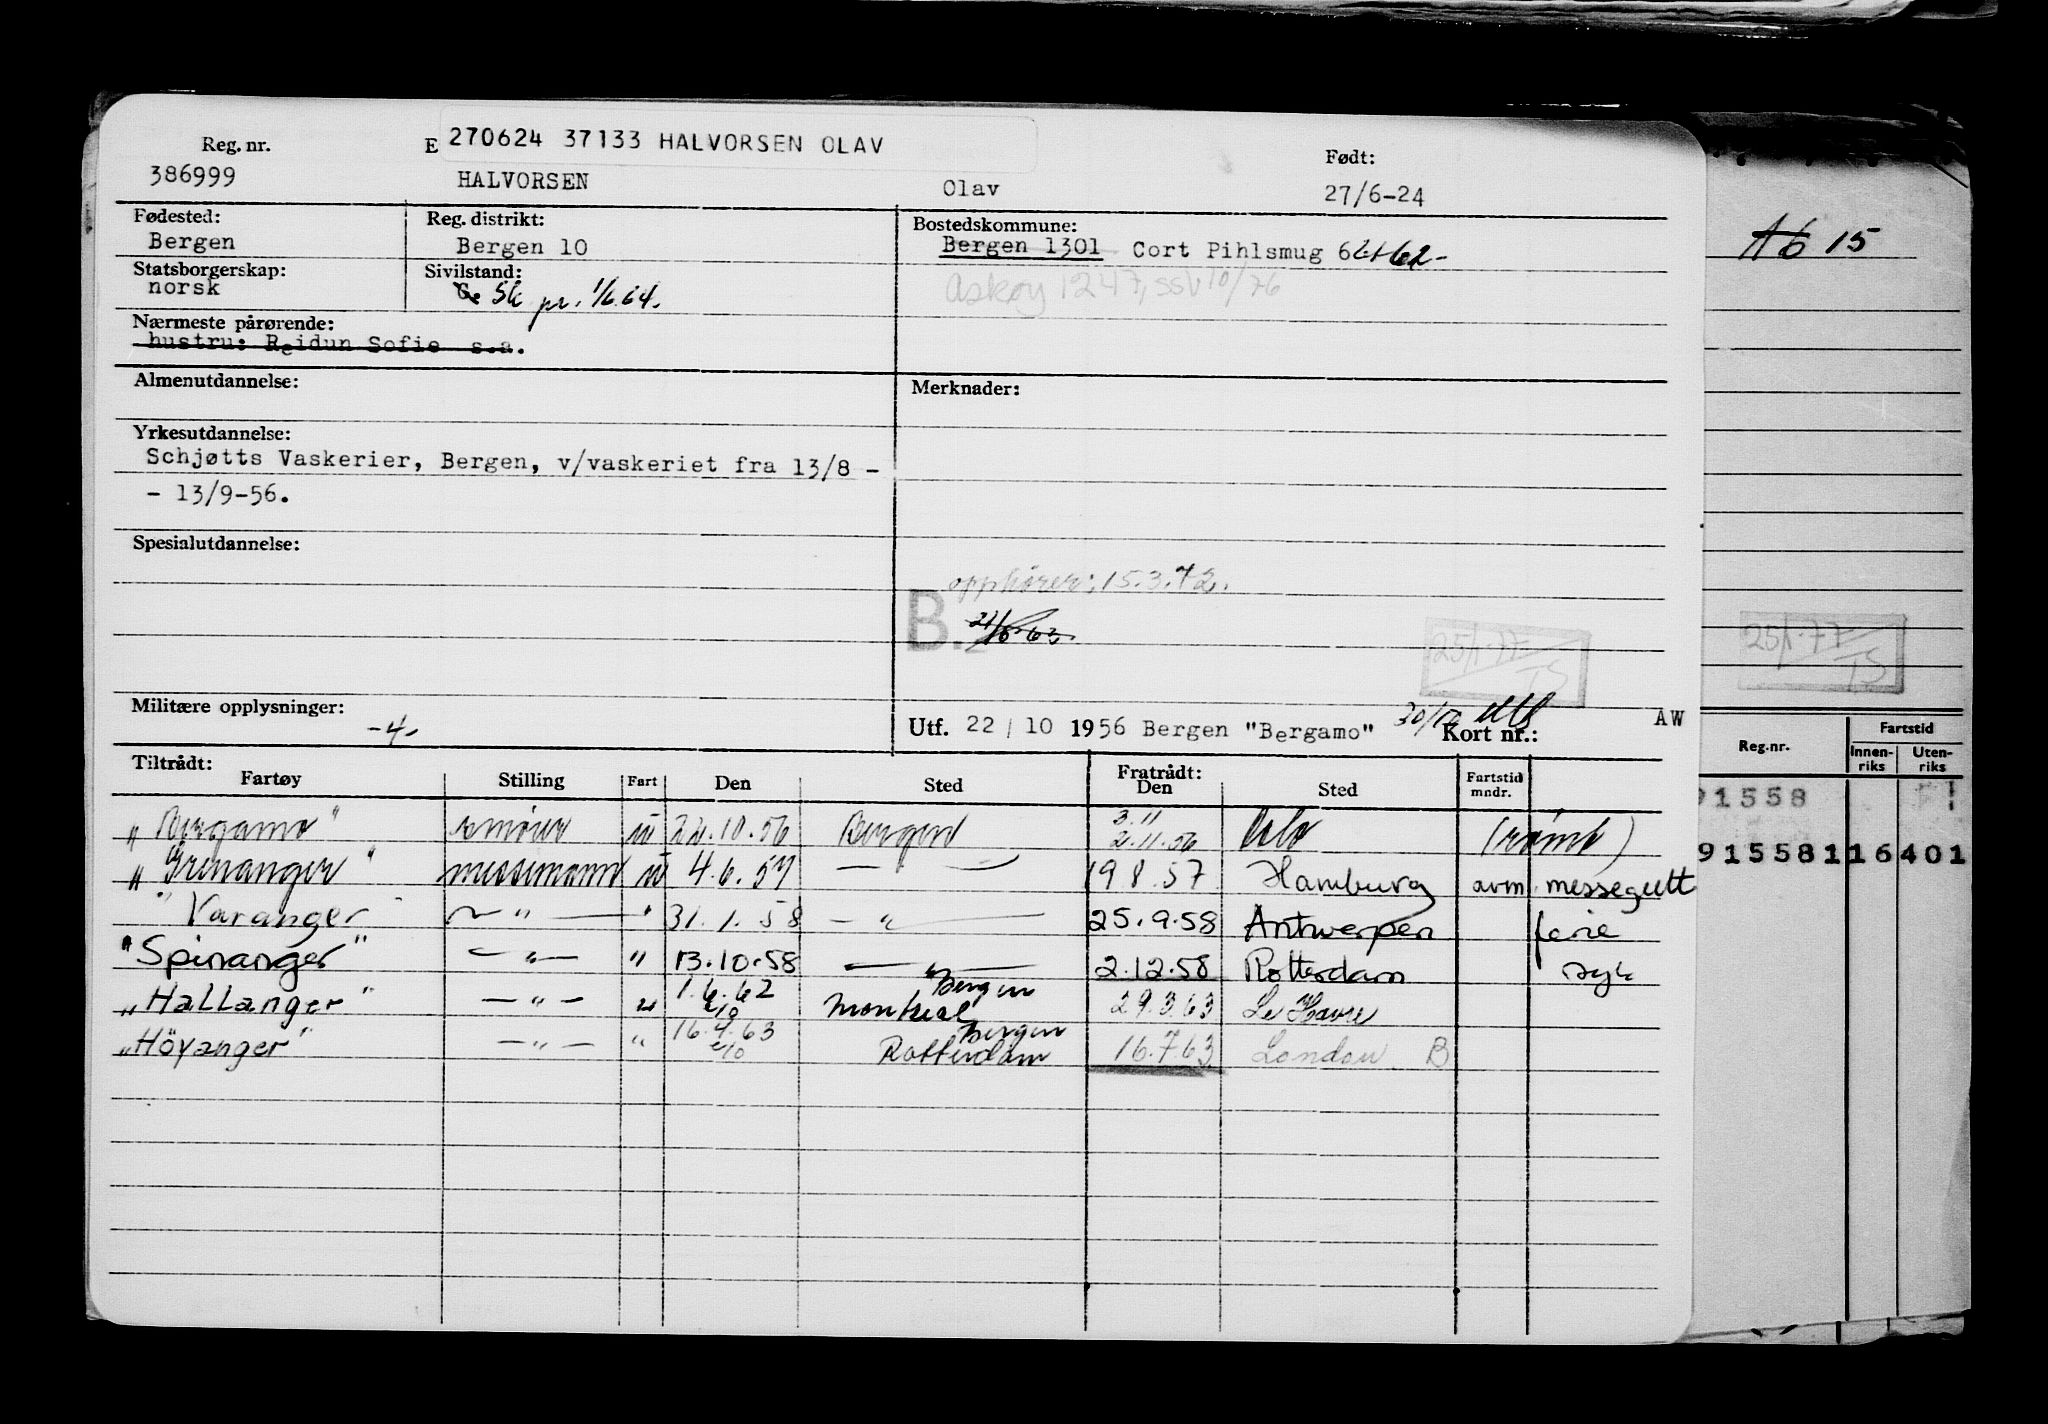 Reg. nr. E 270624 37133 HALVORSEN OLAV Født:
386999 HALVORSEN Olav 27/6-24
Fødested: Reg. distrikt: Bostedskommune:
Bergen Bergen 10 Bergen 1301 Cort Pihlsmug 62-
Statsborgerskap: Sivilstand: Askøy 1247, SSV 10/76
norsk G. Sk pr. 1/6.64.
Nærmeste pårørende:
hustru: Reidun Sofie s.a.
Almenutdannelse: Merknader:
Yrkesutdannelse:
Schjøtts Vaskerier, Bergen, v/vaskeriet fra 13/8 -
- 13/9-56.
Spesialutdannelse:
opphører: 15.3.72.
B. 21/6-63.
25/1-77 TS
Militære opplysninger: -4-
Utf. 22/10 1956 Bergen "Bergamo" 30/10 Kort nr.: AW
Tiltrådt: Fratrådt:
Fartøy Stilling Fart Den Sted Den Sted Fartstid mndr.
"Bergamo" smører u 22.10.56 Bergen 3.11 2.11.56 Oslo (rømt)
"Grenanger" messemann u 4.6.57 — 19 8.57 Hamburg avm. messegutt
"Varanger" — " — " 31.1.58 — " — 25.9.58 Antwerpen ferie
"Spinanger" — " — " 13.10.58 — " — 2.12.58 Rotterdam syk
"Hallanger" — " — " 1.6.62 e/o Bergen Montreal 29.3.63 Le Havre
"Höyanger" — " — " 16.4.63 e/o Bergen Rotterdam 16.7.63 London B
A6 15
25/1-77 TS
Reg.nr. Fartstid
Innen-riks Uten-riks
91558
91558116401